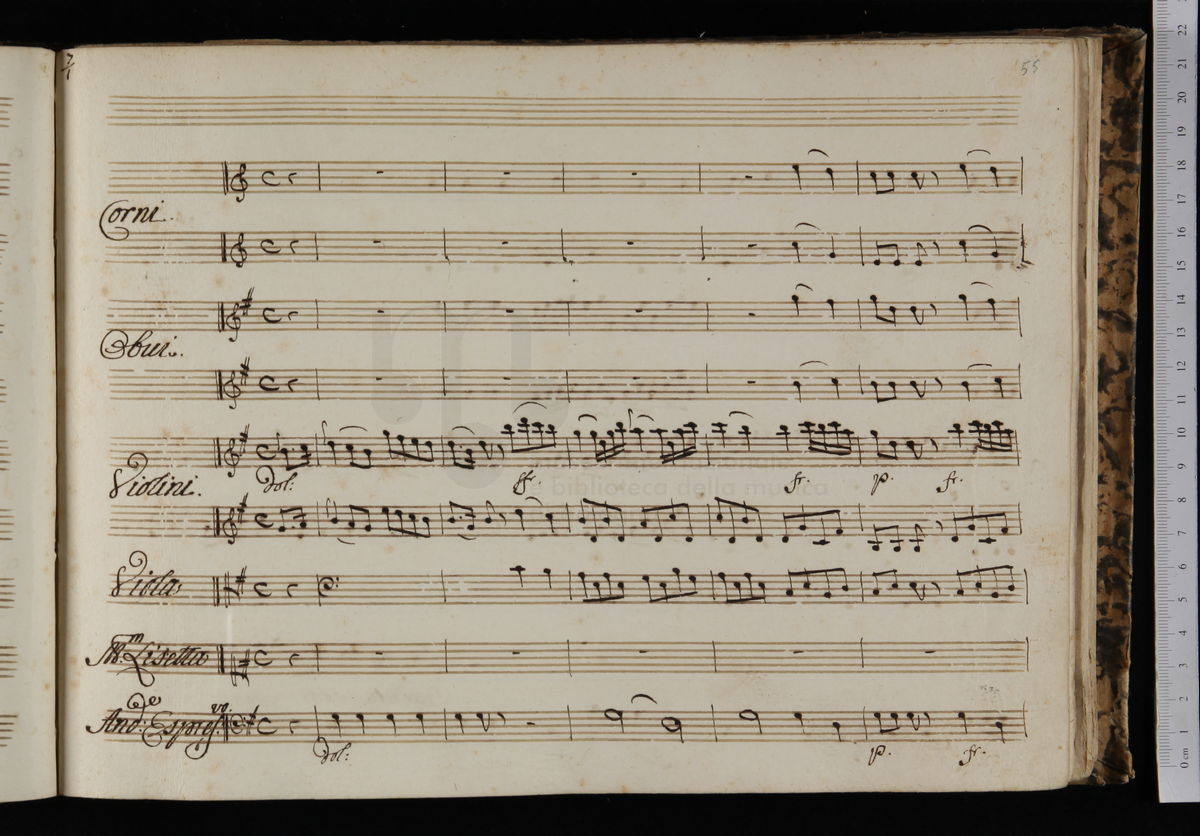 7/1
55
Corni.
Obui.
Violini.
dol: fr. fr. p. fr.
biblioteca della musica
Viola
M.m Lisetta
And.e Espres.vo
dol: p. fr.
0 cm 1 2 3 4 5 6 7 8 9 10 11 12 13 14 15 16 17 18 19 20 21 22